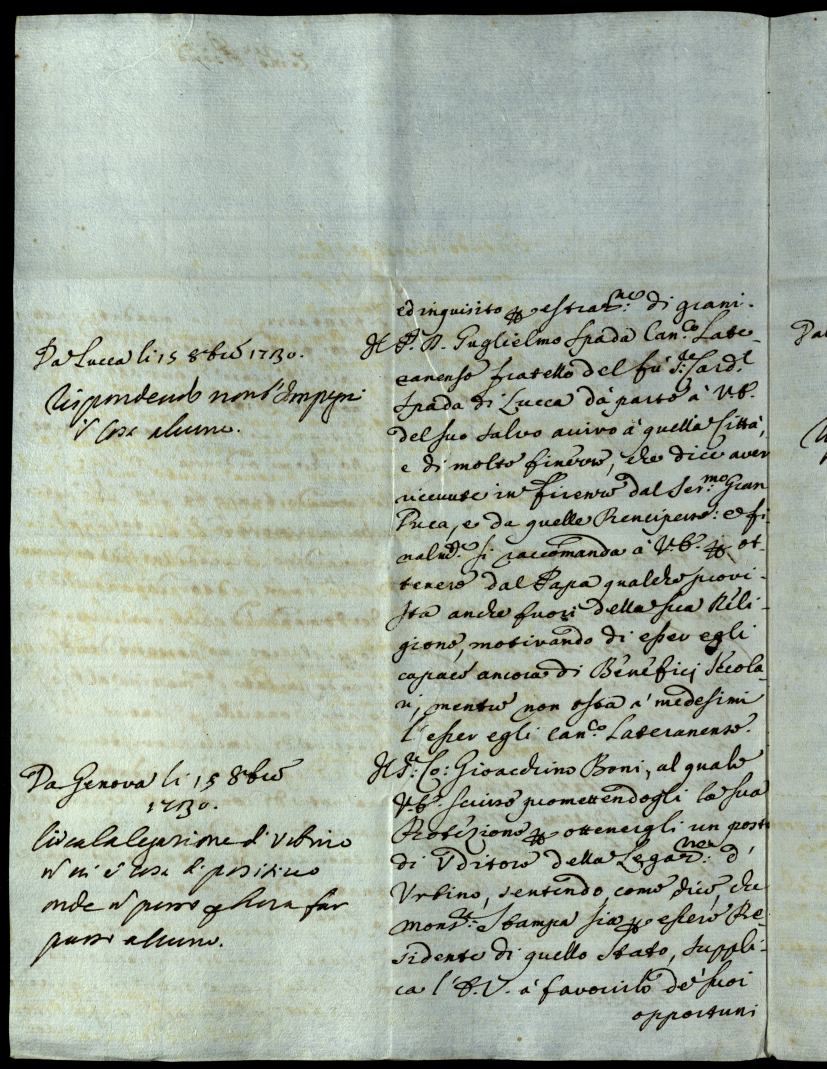 ed inquisito per estraz.ne di grani.
Da Lucca li 15 8bre 1730.
Rispondendo non s'Impegni
à cosa alcuna.
Il P. D. Guglielmo Spada Can.co Late-
ranense fratello del fù S.r Card.l
Spada di Lucca dà parte à V.E.
del suo salvo arrivo à quella Città,
e di molte finezze, che dice aver
ricevute in Firenze dal Ser.mo Gran
Duca, e da quelle Prencipesse: e fi-
nalm.e si raccomanda à V.E. per ot-
tenere dal Papa qualche provi-
sta anche fuori della sua Reli-
gione, motivando di esser egli
capace ancora di Benéficj Secola-
ri, mentre non osta a' medesimi
l'esser egli can.co Lateranense.
Da Genova li 15 8bre
1730.
Circa la legazione d'Urbino
n vi è cosa di positivo
onde n posso p hora far
passo alcuno.
Il S.r Co: Gioacchino Boni, al quale
V.E. scrisse promettendogli la sua
Protezione per ottenergli un posto
di Uditore della Legaz.ne d'
Urbino, sentendo come dice, che
Mons.r Stampa sia per essere Pre-
sidente di quello Stato, suppli-
ca l'E.V. à favorirlo de' suoi
opportuni